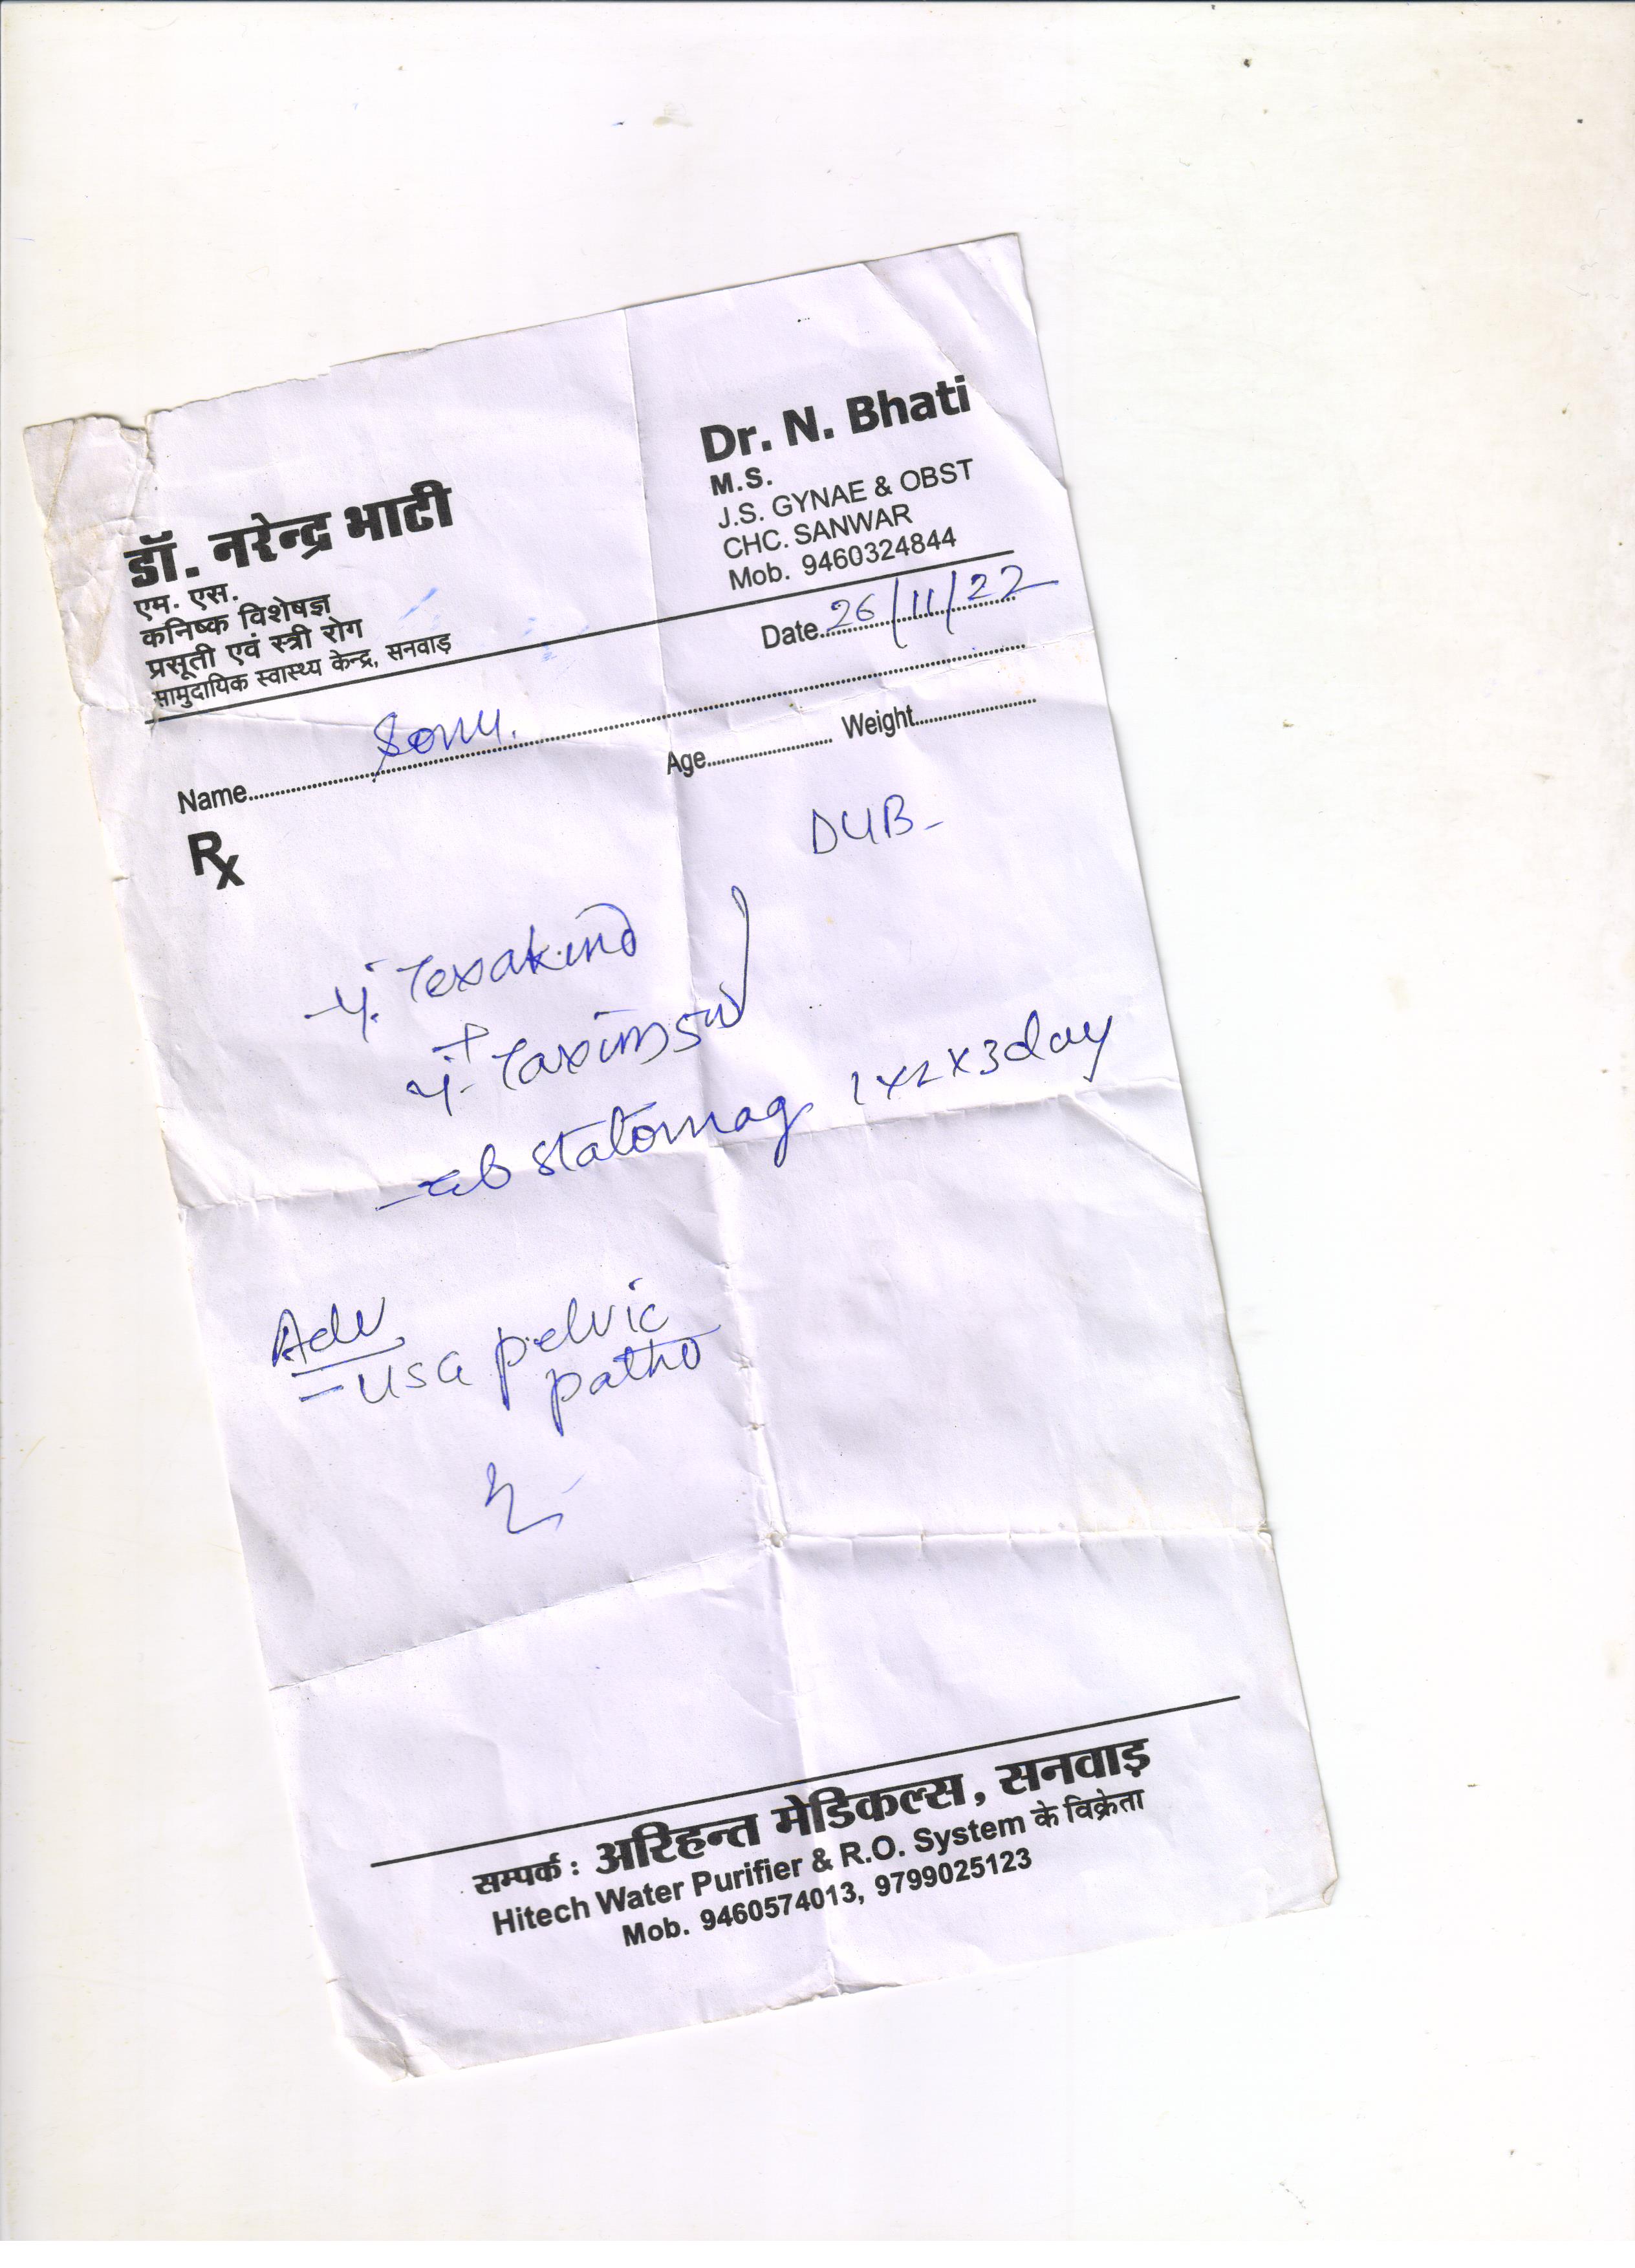 डॉ. नरेन्द्र भाटी
एम. एस.
कनिष्क विशेषज्ञ
प्रसूती एवं स्त्री रोग
सामुदायिक स्वास्थ्य केन्द्र, सनवाड़
Dr. N. Bhati
M.S.
J.S. GYNAE & OBST
CHC. SANWAR
Mob. 9460324844
Date 26/11/22
Name Sonu.
Age Weight
Rx
DUB-
Texakind
+
Taxim
Statomag 1x2x3day
Adv
- USG pelvic
patho
सम्पर्क : अरिहन्त मेडिकल्स, सनवाड़
Hitech Water Purifier & R.O. System के विक्रेता
Mob. 9460574013, 9799025123